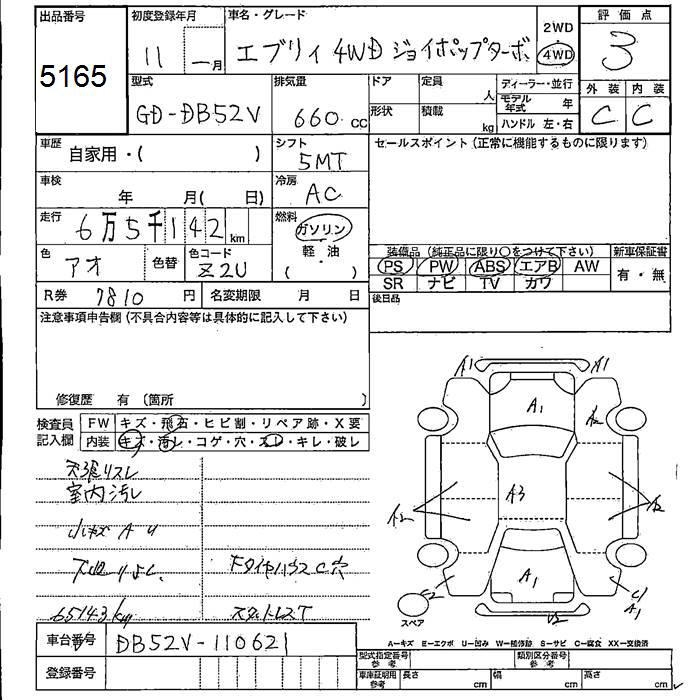 出品番号
5165
初度登録年月
11 一月
車名・グレード
エブリィ 4WD ジョイポップターボ
2WD
4WD
評価点
3
型式
GD-DB52V
排気量
660 cc
ドア
形状
定員
人
積載
kg
ディーラー・並行
モデル年式 年
ハンドル 左・右
外装 内装
C C
車歴
自家用・( )
シフト
5MT
セールスポイント(正常に機能するものに限ります)
車検
年 月( 日)
冷房
AC
走行
6万5千142 km
燃料
ガソリン
軽・油
( )
色
アオ
色替
色コード
Z2U
装備品(純正品に限り○をつけて下さい)
PS PW ABS エアB AW
SR ナビ TV カワ
新車保証書
有・無
R券 7810 円
名変期限 月 日
後日品
注意事項申告欄(不具合内容等は具体的に記入して下さい)
修復歴 有 〔箇所 〕
検査員記入欄
FW キズ・飛石・ヒビ割・リペア跡・X要
内装 キズ・汚レ・コゲ・穴・スレ・キレ・破レ
天張リスレ
室内汚レ
小キズ A U
下廻りサビ
65143km
FタイヤハウスC穴
スタットレスT
A1 A1
A1
A2
A3
A2
A2
A1
C2
C1
A1
U2
スペア
A−キズ E−エクボ U−凹み W−補修跡 S−サビ C−腐食 XX−交換済
車台番号 DB52V-110621
登録番号
型式指定番号 参考
類別区分番号 参考
車庫証明用 参考
長さ cm
幅 cm
高さ cm